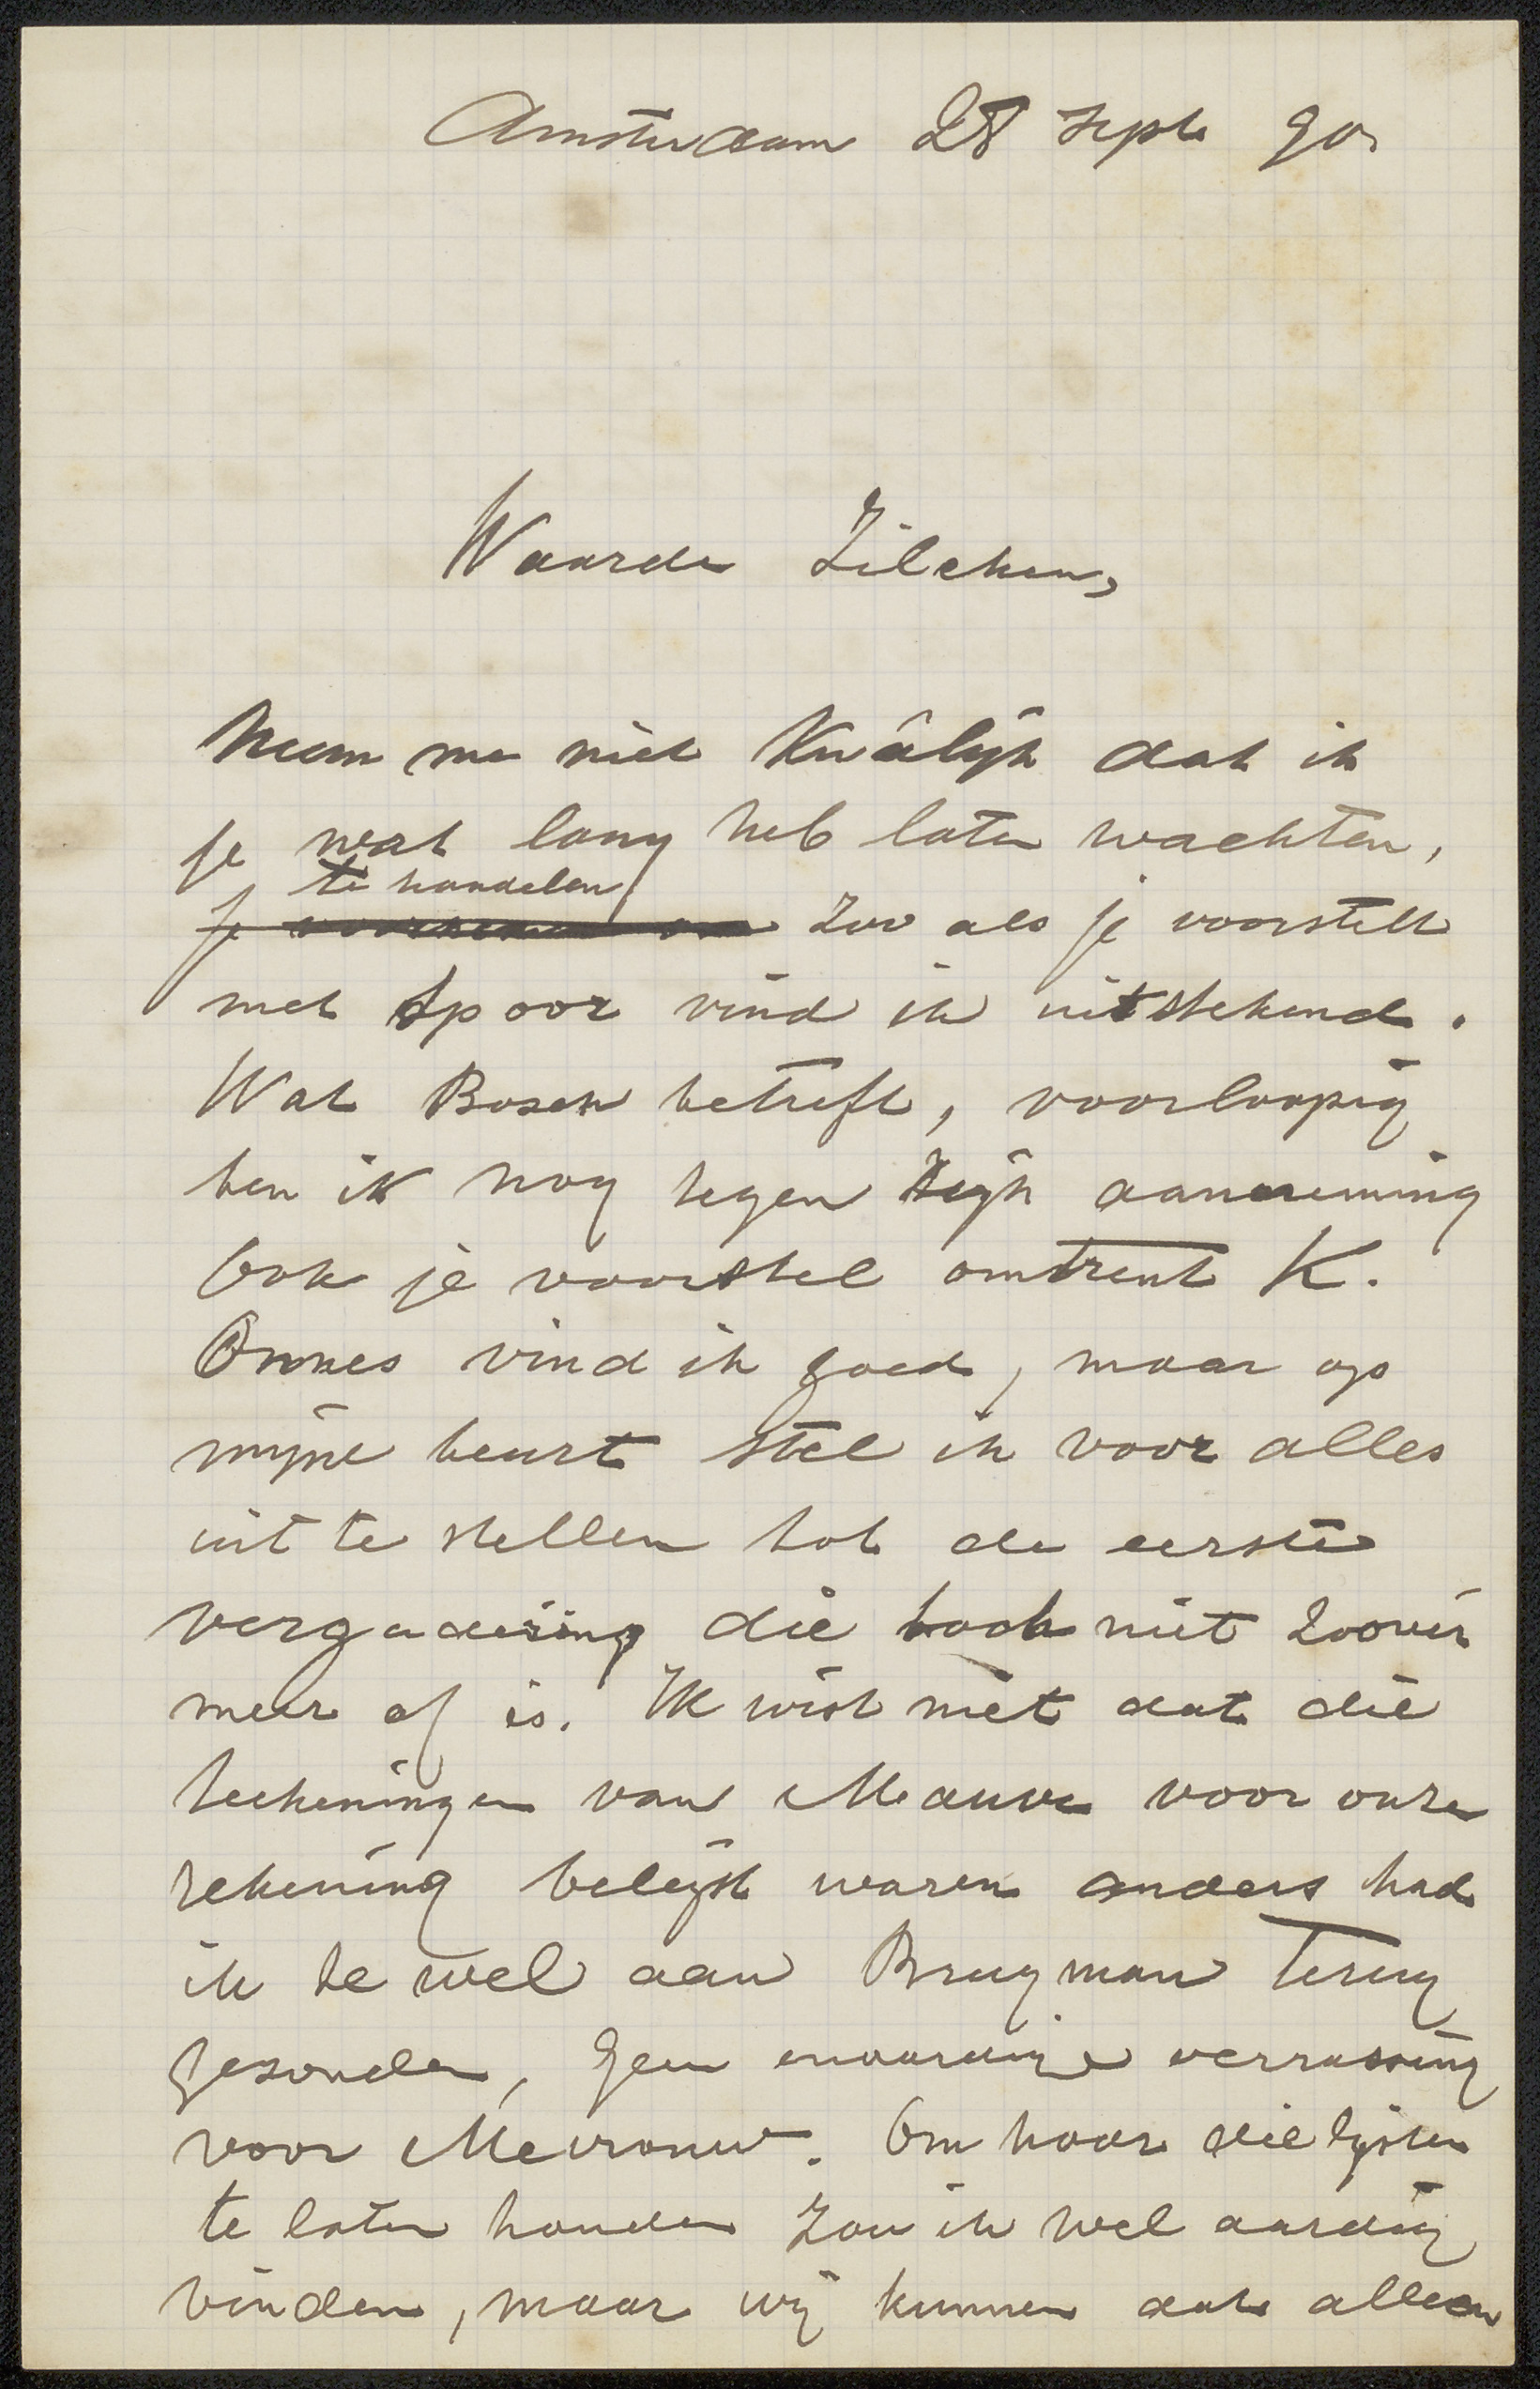 Amsterdam 28 Sept 90.
Waarde Zilcken,
Neem me niet kwâlijk dat ik
je wat lang heb laten wachten,
te handelen
Je voornemen om zoo als je voorstelt
met Spoor vind ik uitstekend.
Wat Bosch betreft, voorloopig
ben ik nog tegen zijn aanneming
Ook je voorstel omtrent K.
Onnes vind ik goed, maar op
mijne beurt stel ik voor alles
uit te stellen tot de eerste
vergadering die toch niet zoover
meer af is. Ik wist niet dat die
teekeningen van Mauve voor onze
rekening belijst waren anders had
ik ze wel aan Brugman terug
gezonden, geen onaardige verrassing
voor Mevrouw. Om haar die lijsten
te laten houden zou ik wel aardig
vinden, maar wij kunnen dat alleen